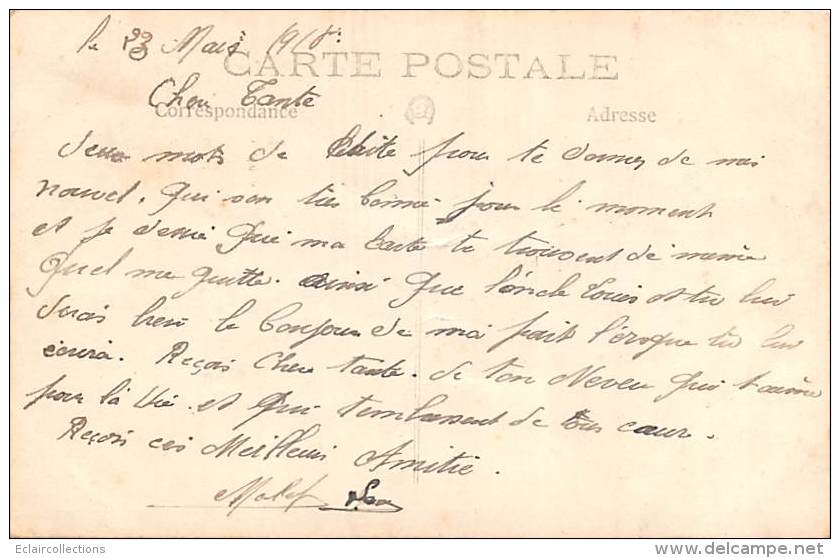 le 23 Mars 1918.
CARTE POSTALE
Cher Tante
Correspondance
Adresse
deux mots de suite pour te donner de mes
nouvel. Qui son tes bonne pour le moment
et je desire que ma Carte te trouvent de même
Quel me quitte. ainsi que l'oncle Louis et tu lui
diras bien le bonjour de ma part lorsque tu lui
ecrira. Reçois Cher tante. de ton Neveu qui t'aime
pour la vie. et qui t'embrassent de tous cœur.
Reçois ces Meilleurs Amitie.
Eclaircollections
delcampe.net